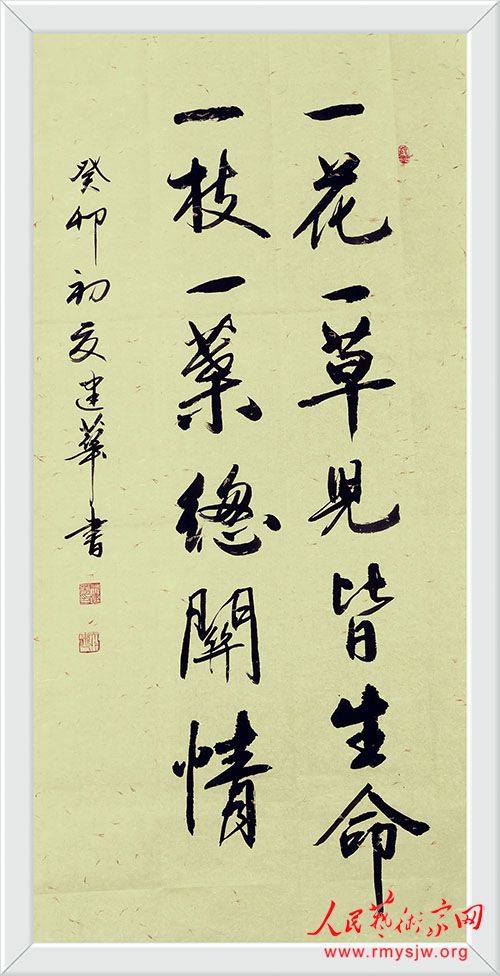 一花一草見皆生命
一枝一葉總關情
癸卯初夏建華書
人民藝術家网
www.rmysjw.org